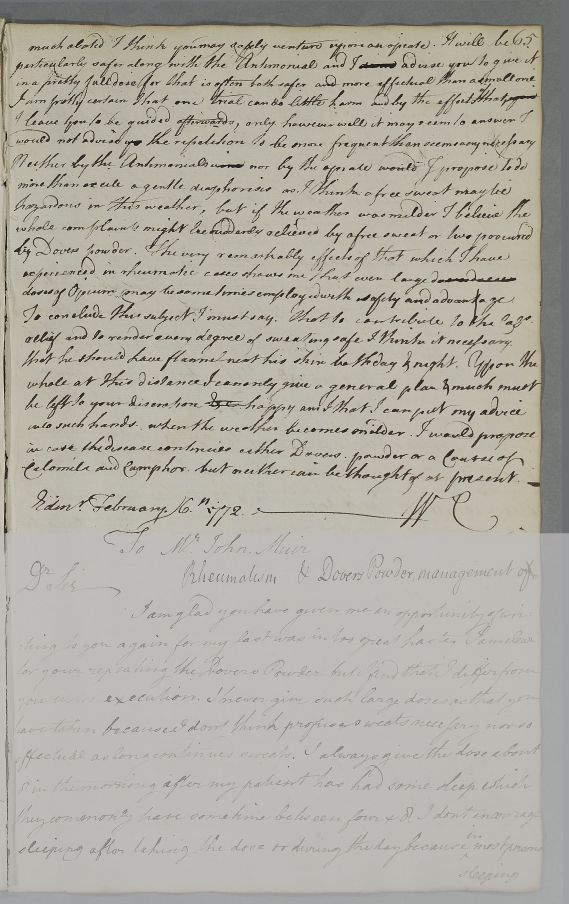 65.
much abated I think you may safely venture upon an opiate. It will be
particularly safer along with the Antimonial and I advise you to give it
in a pretty full dose, for that is often both safer and more effectual than a small one
I am pretty certain that one trial can do little harm and by the effects of that
I leave you to be guided afterwards, only however well it may seem to answer I
would not advise the repetition to be more frequent than seems very necessary
Neither by the Antimonials nor by the opiate would I propose to do
more than excite a gentle diaphoresis as I think a free sweat may be
hazardous in this weather, but if the weather was milder I believe the
whole complaints might be suddenly relieved by a free sweat or two procured
by Dovers powder. The very remarkably effects of that which I have
experienced in rheumatic cases shews me that even large
doses of Opium may be sometimes employed with safety and advantage
To conclude this subject I must say. That to contribute to the
relief and to render every degree of sweating safe I think it necessary
that he should have flannel next his skin both day & night. Upon the
whole at this distance I can only give a general plan & much must
be left to your discretion happy am I that I can put my advice
into such hands. when the weather becomes milder. I would propose
in case the disease continues either Dovers powder or a Course of
Calomile and Camphor. but neither can be thought of at present.
Edinr. February 16.th 1772. WC
To Mr. John Muir
Rheumatism & Dovers Powder, management of
Dr. Sir
I am glad you have given me an opportunity of wri-
ting to you again for my last was in too great haste. I am clear
for your repeating the Dovers Powder but I find that I differ from
you in execution. I never give such large doses as that you
have taken because I dont think profuse sweats necessary nor so
effectual as long continued sweats. I always give the dose about
8 in the morning after my patient has had some sleep which
they commonly have sometime between four & 8 I dont encourage
sleeping after taking the dose or during the day because in most persons
sleeping